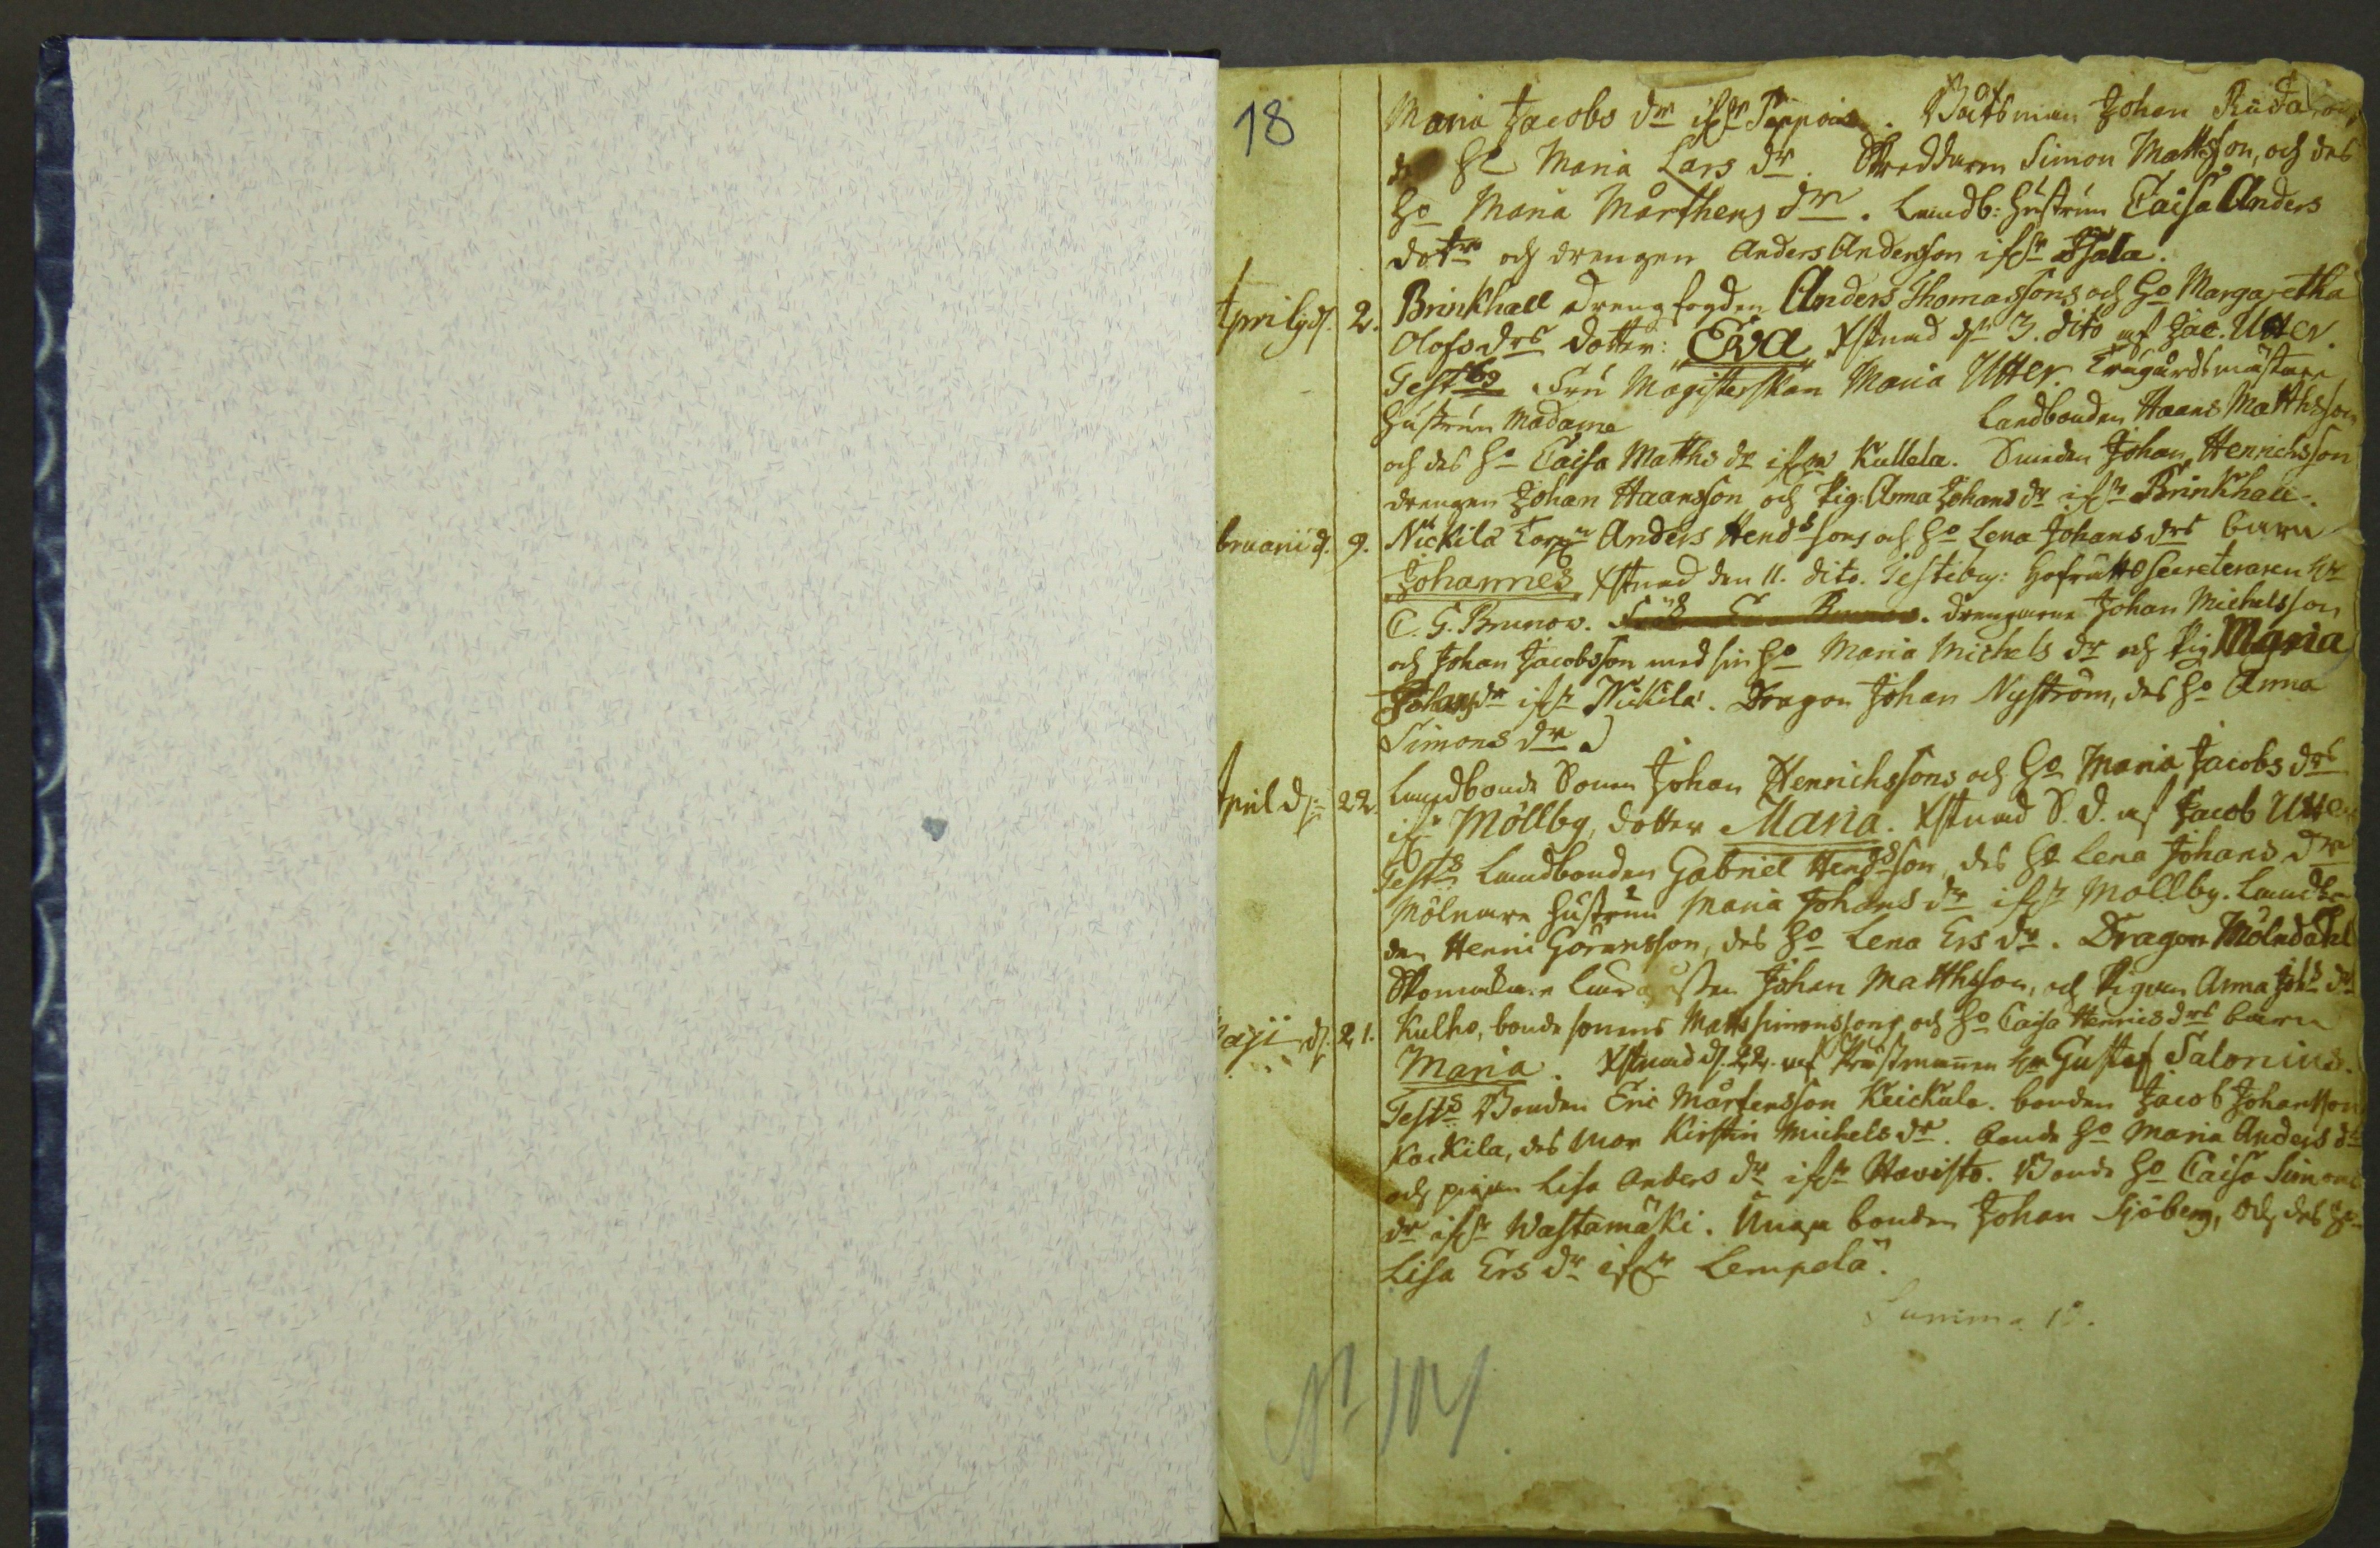 18
Maria Jacobs dr ifrn Pappois. Båtsman Johan Ruda, och
d Ho Maria Lars dr. Skreddaren Simon Mattsson, och des
Ho Maria Mårthens dr. Landb: hustrun Caisa Anders
dotr och drengen Anders Andersson ifrn Isala.
Aprilis d. 2. Brinkhall Drengfogden Anders Thomassons och Ho Margaretha
Olofs drs dotter: Eva Xstnad dn 3. dito af Jac. Utter.
Testbg Fru Magisterskan Maria Utter. Trägårdsmästare
hustrun Madame Landbonden Haans Matthsson
och des Ho Caisa Matths dr ifrn Kullela. Smeden Johan Henrichsson
drengen Johan Haansson och Pig: Anna Johans dr ifrn Brinkhall.
bruarii d. 9. Nickilä Torpn Anders Hendssons och Ho Lena Johans drs barn
Johannes Xstnad den 11. dito. Testibg: Hofrätts Secreteraren Hr
C. G. Brunow. drengarne Johan Michelsson
och Johan Jacobsson med sin Ho Maria Michels dr och Pig Maria
Johans dr ifrn Nickilä. Dragon Johan Nyström, des Ho Anna
Simons dr
April dn 22. Landbonde Sonen Johan Henrichssons och Ho Maria Jacobs drs
ifrn Möllby, dotter Maria. Xstnad S. D. af Jacob Utter
Tests Landbonden Gabriel Hendsson, des Ho Lena Johans dr
Mölnare hustrun Maria Johans dr ifrn Möllby. Landbo-
den Henric Göransson, des Ho Lena Ers dr. Dragon Mölndahl
Skomakare Johan Matthsson, och Pigan Anna Johs dr
Maji d. 21. Kulho, bonde sonens Matts Simonssons och Ho Caisa Henrics drs barn
Maria. Xstnad d. 22. af Prästmannen Hr Gustaf Salonius.
Tests Bonden Eric Mårtensson Keickala. bonden Jacob Johansson
Kackila, des Mor Kirstin Michels dr. bonde Ho Maria Anders dr
och pigan Lisa Anders dr ifrn Havisto. Bonde Ho Caisa Simons
dr ifrn Wastamäki. Unga bonden Johan Sjöberg, och des Ho
Lisa Ers dr ifrn Lempelä.
Summa 18.